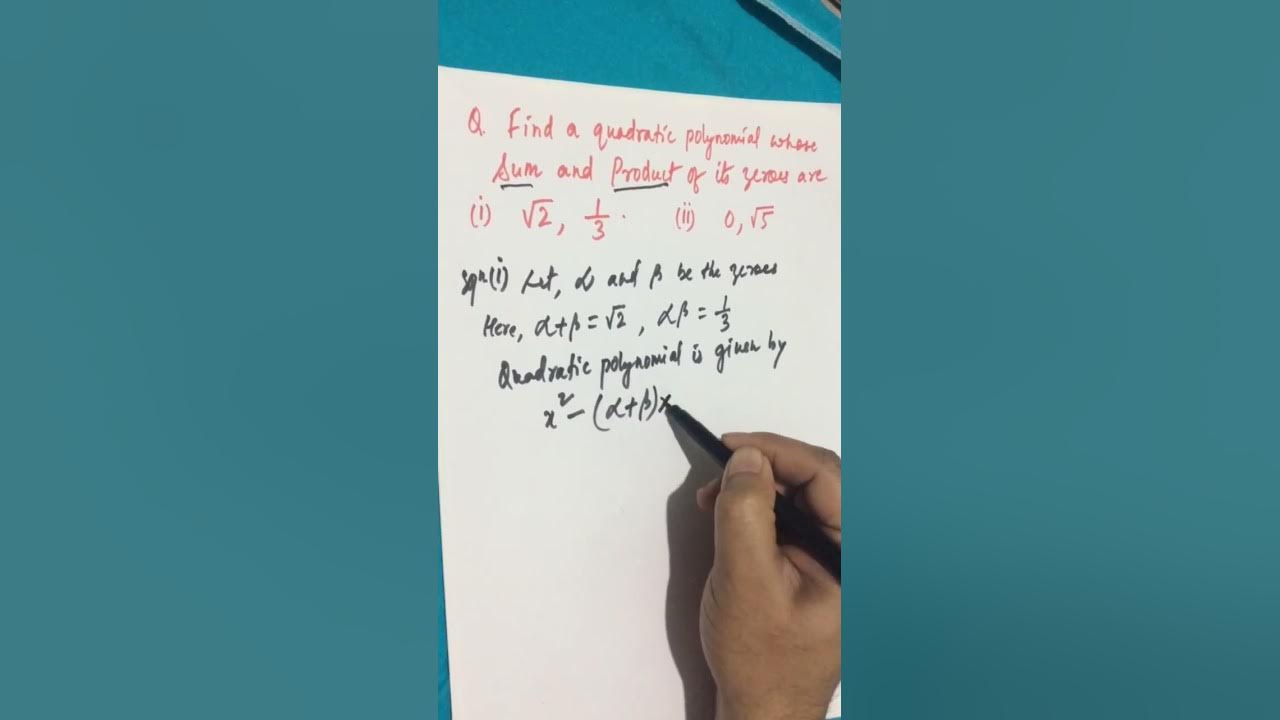 Q. Find a quadratic polynomial whose
Sum and Product of its zeroes are
(i) √2, 1/3. (ii) 0, √5
Solⁿ(i) Let, α and β be the zeroes
Here, α+β = √2, αβ = 1/3
Quadratic polynomial is given by
x² - (α+β)x